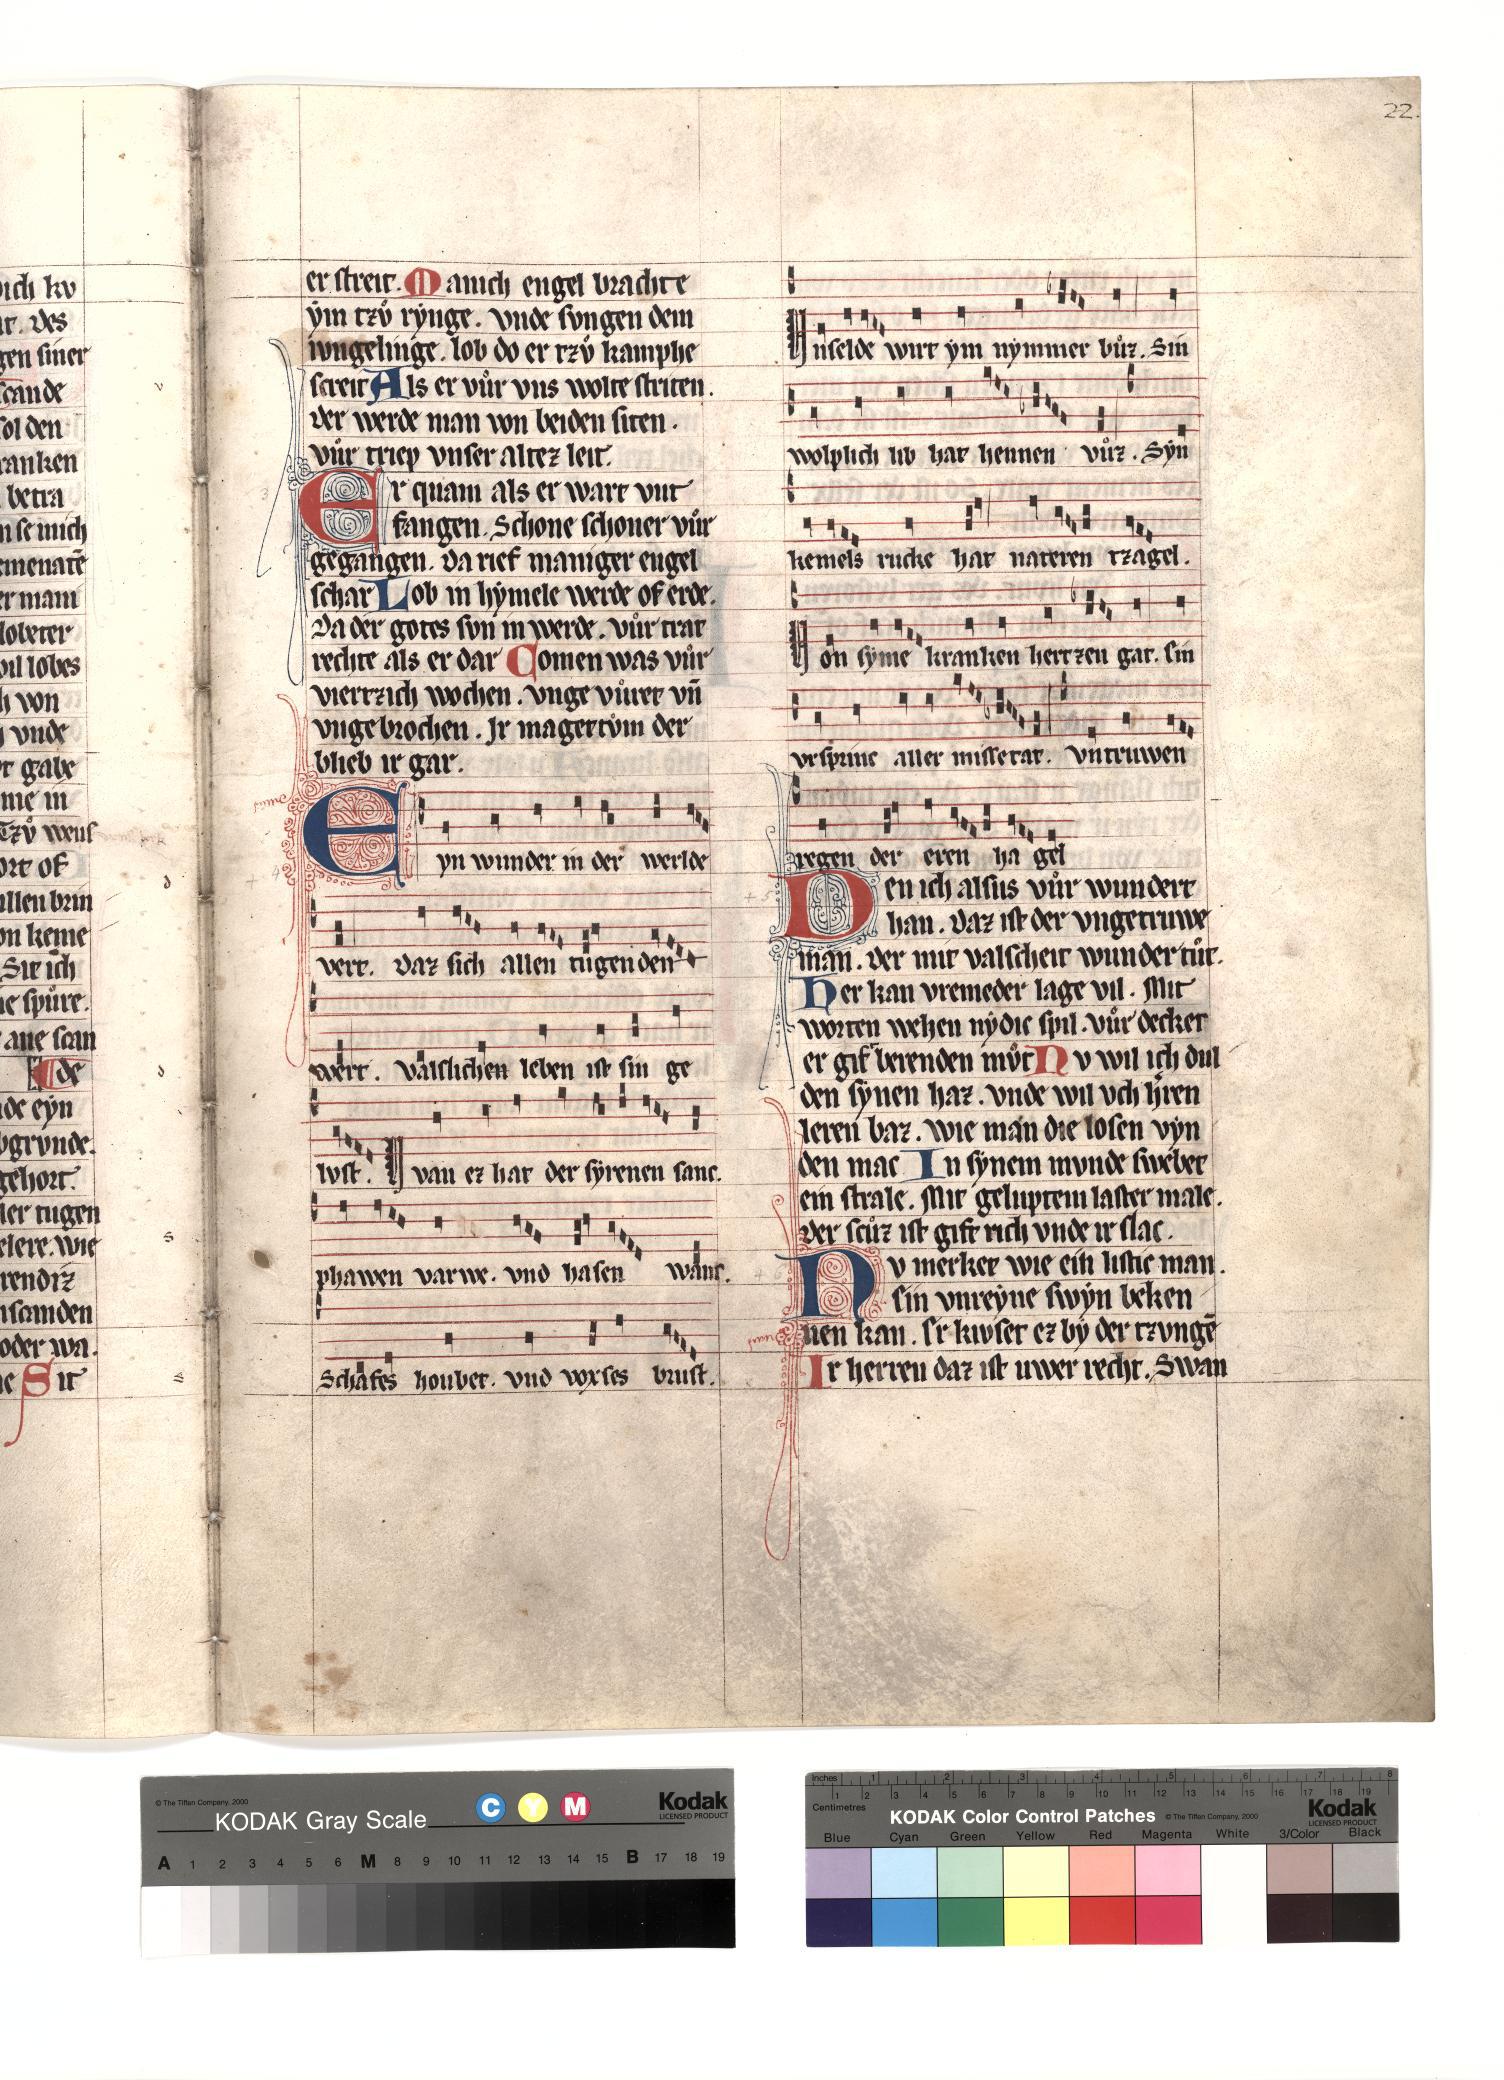 22.
ich kv
t. des
gen siner
scande
sol den
ranken
betra
n se mich
emenatē
er mani
loveter
vil lobes
h von
vnde
t gabe
me in
Tzů wens
ort of
allen brin
on keme
Sit ich
ne spůre.
ane scan
de
de eyn
bgrvnde.
gehort.
ler tugen
elere. wie
rendiz
nscanden
oder wa.
ne Sit
er streit. Manich engel brachte
ym tzů rynge. vnde svngen dem
ivngelinge. lob do er tzů kamphe
screit Als er vůr vns wolte striten.
der werde man von beiden siten.
vůr triep vnser altez leit.
Er quam als er wart vnt
fangen. Schone schoner vůr
gegangen. da rief maniger engel
schar Lob in hymele werde of erde.
Da der gotes svn in werde. vůr trat
rechte als er dar Comen was vůr
viertzich wochen. vnge vůret vñ
vnge brochen. Ir magertvm der
blieb ir gar.
Eyn wunder in der werlde
vert. daz sich allen tugenden
wert. valslichen leben ist sin ge
lvst. Swan ez hat der syrenen sanc.
phawen varwe. vnd hasen wanc.
Schafes houbet. vnd voxses brust.
Vnselde wirt ym nymmer bůz. Sin
wolplich lib hat hennen vůz. Syn
kemels rucke hat nateren tzagel.
Von syme kranken hertzen gat. sin
vrsprinc aller missetat. vntruwen
regen der eren ha gel
Den ich alsus vůr wundert
han. daz ist der vngetruwe
man. der mit valscheit wunder tůt.
Her kan vremeder lage vil. Mit
worten wehen nydic spil. vůr decket
er gift berenden můt Nv wil ich dul
den synen haz. vnde wil vch hren
leren baz. wie man die losen vyn
den mac In synem mvnde swebet
ein strale. Mit geluptem laster male.
der scůz ist gift rich vnde ir slac.
Nv merket wie ein listic man.
sin vnreyne swyn beken
nen kan. Er kivset ez by der tzvngē
Ir herren daz ist uwer recht. Swan
© The Tiffen Company, 2000
KODAK Gray Scale
C Y M
Kodak
LICENSED PRODUCT
A 1 2 3 4 5 6 M 8 9 10 11 12 13 14 15 B 17 18 19
Inches 1 2 3 4 5 6 7 8
Centimetres 1 2 3 4 5 6 7 8 9 10 11 12 13 14 15 16 17 18 19
KODAK Color Control Patches
© The Tiffen Company, 2000
Kodak
LICENSED PRODUCT
Blue Cyan Green Yellow Red Magenta White 3/Color Black